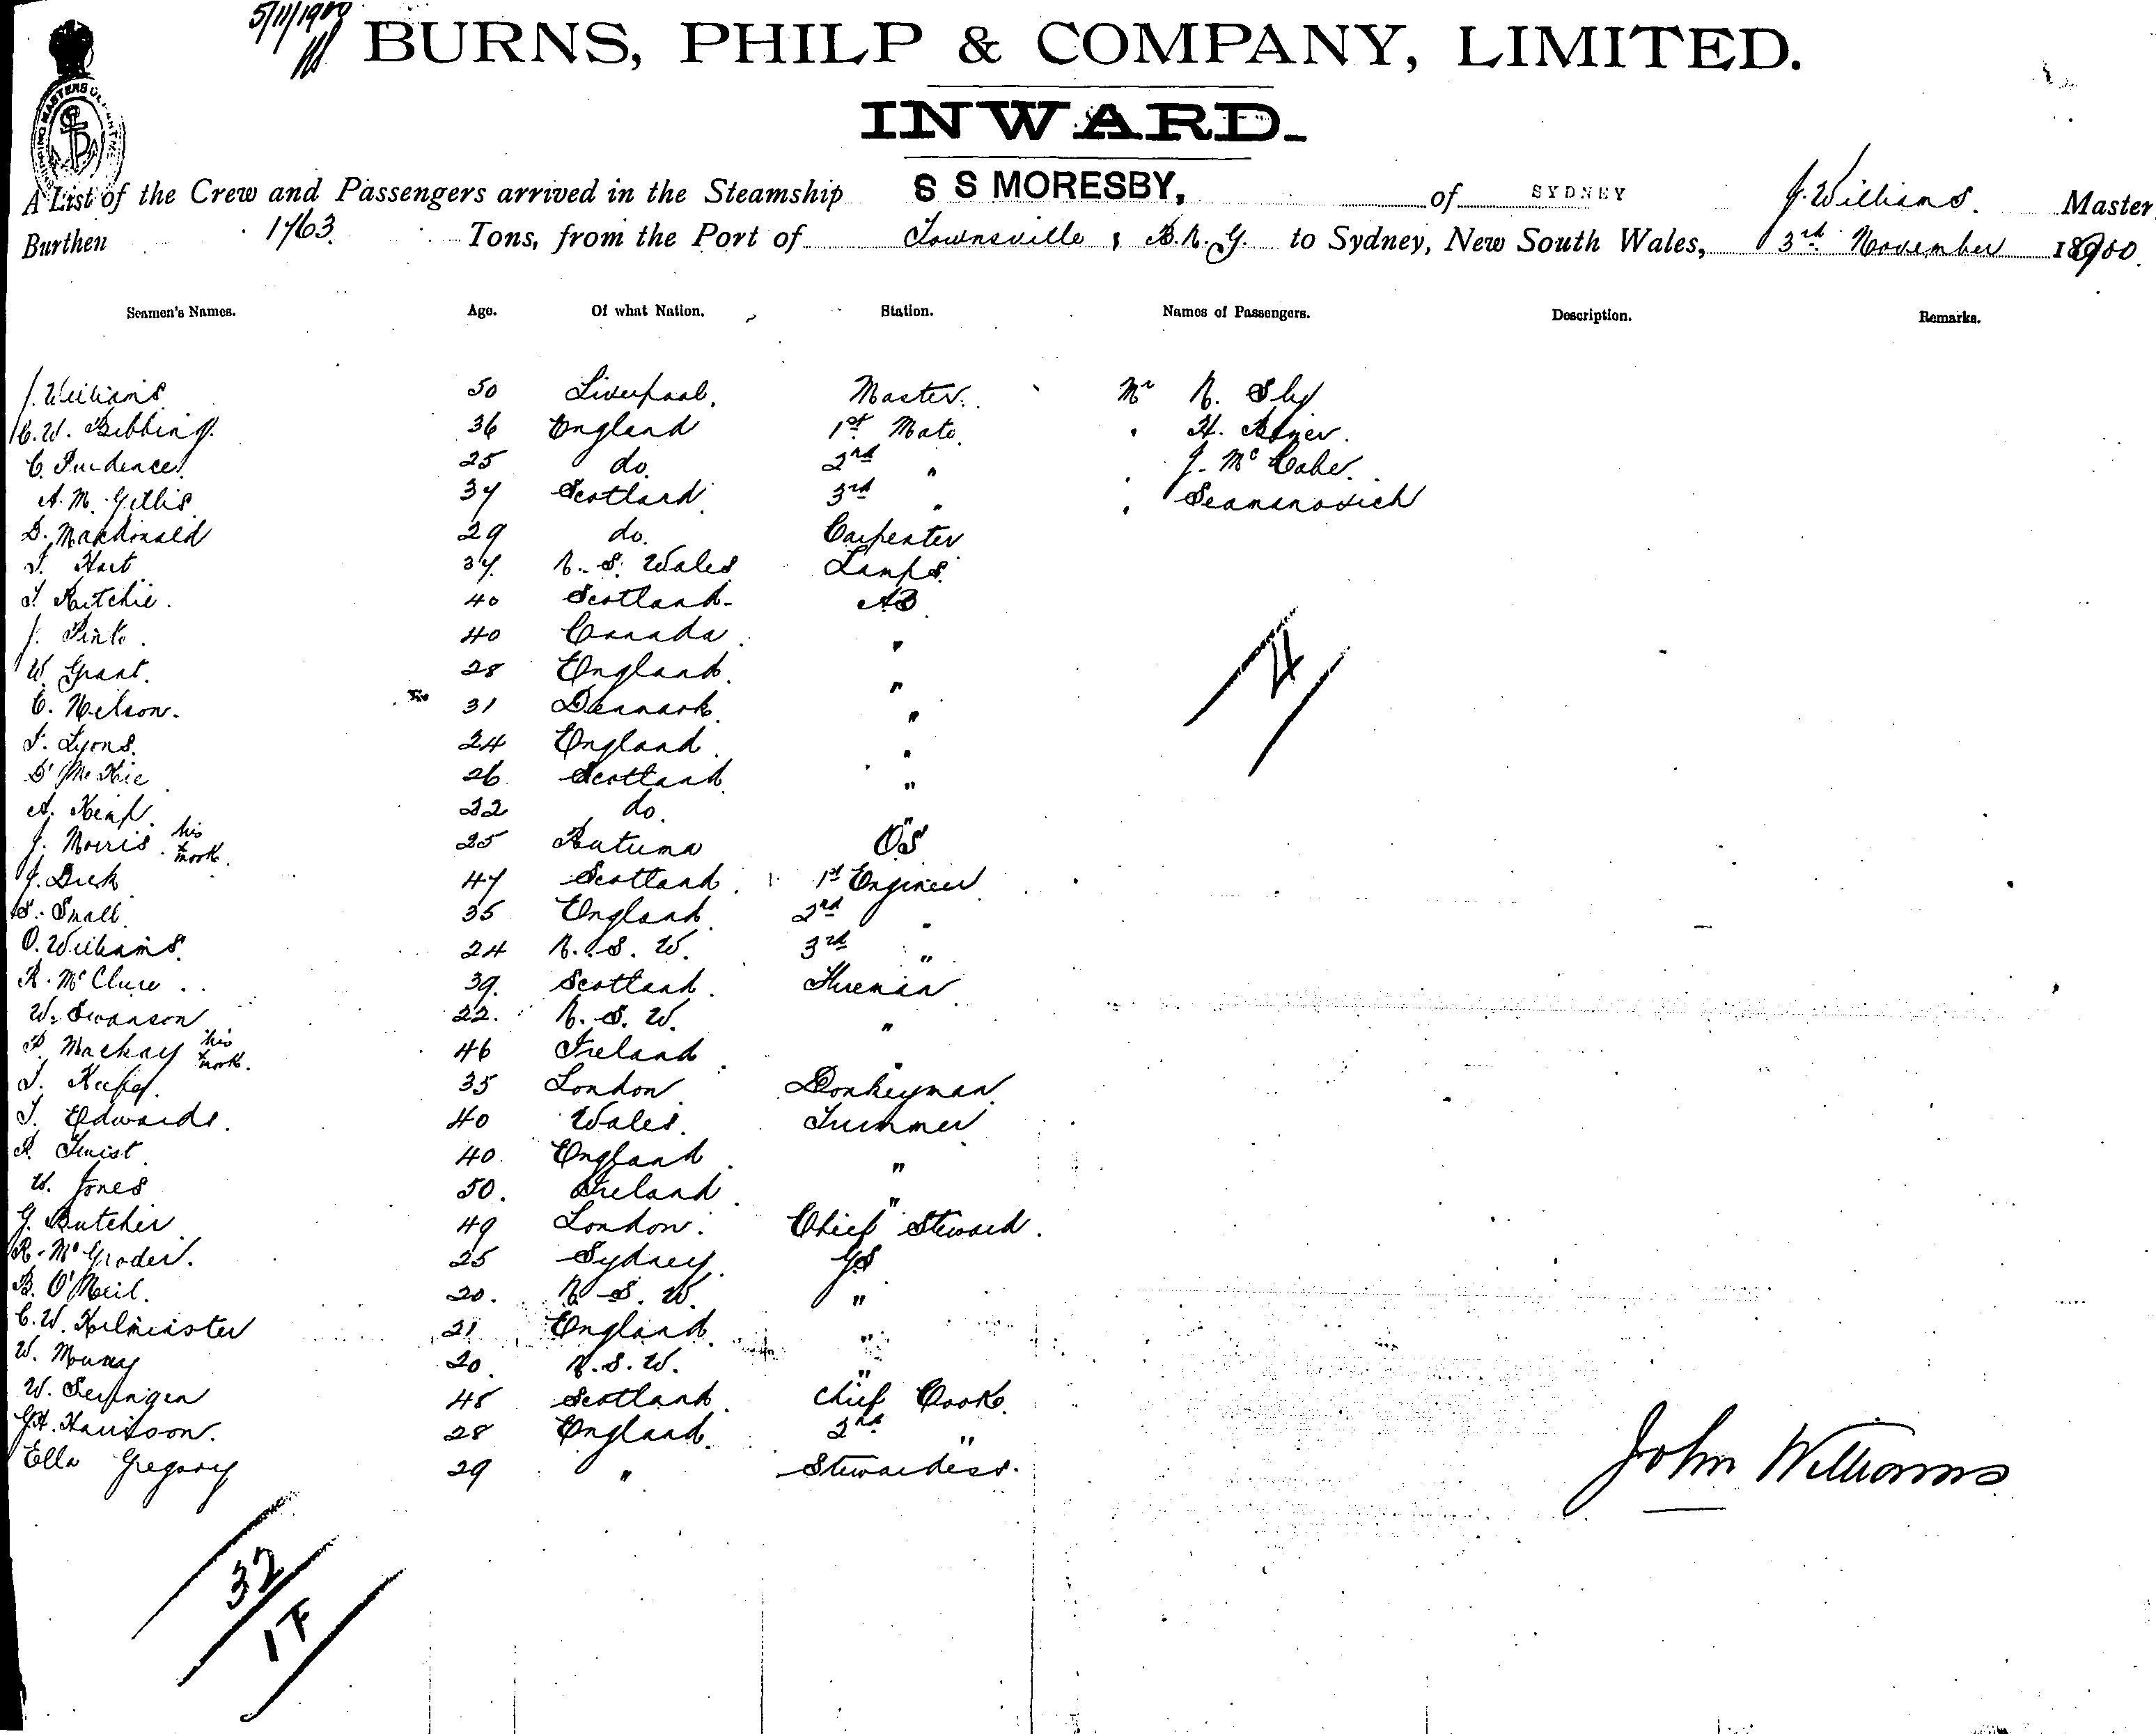 5/11/1900
BURNS, PHILP & COMPANY, LIMITED.
INWARD.
A List of the Crew and Passengers arrived in the Steamship S S MORESBY, of SYDNEY J. Williams. Master
Burthen 1763 Tons, from the Port of Townsville & B.N.G. to Sydney, New South Wales, 3rd November 1900.
Seamen's Names. Age. Of what Nation. Station. Names of Passengers. Description. Remarks.
J. Williams 50 Liverpool. Master. Mr N. Sly
C.W. Bibbing. 36 England 1st Mate. " H.
C. Prudence 25 do. 2nd " " J. McCabe.
A.M. Gillis 37 Scotland 3rd " " Seamanovich
D. Macdonald 29 do. Carpenter
T. Hart 37. N. S. Wales Lamps.
T. Ritchie. 40 Scotland AB
J. Pink. 40 Canada. "
W. Grant. 28 England. "
C. Nelson. 31 Denmark. "
T. Lyons. 24 England. "
D. McKie 26 Scotland. "
A. Kemp. 22 do. "
J. Morris. his x mark. 25 Rutuma OS
J. Dick 47 Scotland. 1st Engineer
S. Small 35 England. 2nd "
O. Williams. 24 N. S. W. 3rd "
R. McClure 39. Scotland. Fireman
W. Swanson 22. N. S. W. "
P. Mackay his x mark. 46 Ireland. "
T. 35 London Donkeyman.
T. Edwards. 40 Wales. Trimmer
R. Twist. 40. England. "
W. Jones 50. Ireland. "
G. Butcher 49 London. Chief Steward.
R. McGroder. 25 Sydney. GS
B. O'Neil. 20. N. S. W. "
C.W. Kilminster 21 England. "
W. 20. N.S.W. "
W. 48 Scotland. Chief Cook.
J.H. Harrison. 28 England. 2nd "
Ella Gregory 29 " Stewardess.
4
John Williams
32
1F